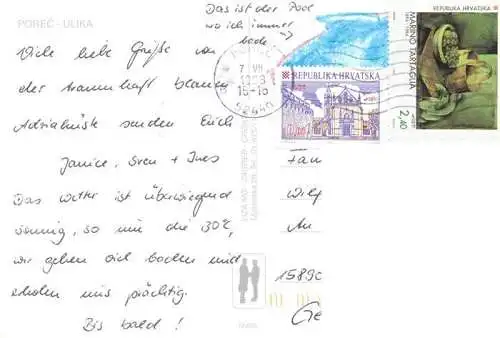 POREČ - ULIKA
Das ist der Pool
wo ich immer
bade →
Viele liebe Grüße von
der traumhaft blauen
Adriaküste senden Euch
Janice, Sven + Ines
Das Wetter ist überwiegend
sonnig, so um die 30°C,
wir gehen viel baden und
erholen uns prächtig.
Bis bald!
7 VII
16-18
52440
REPUBLIKA HRVATSKA
REPUBLIKA HRVATSKA
MARINO TARTAGLIA
2,40
Fam
Wilf
An
1589
Ge